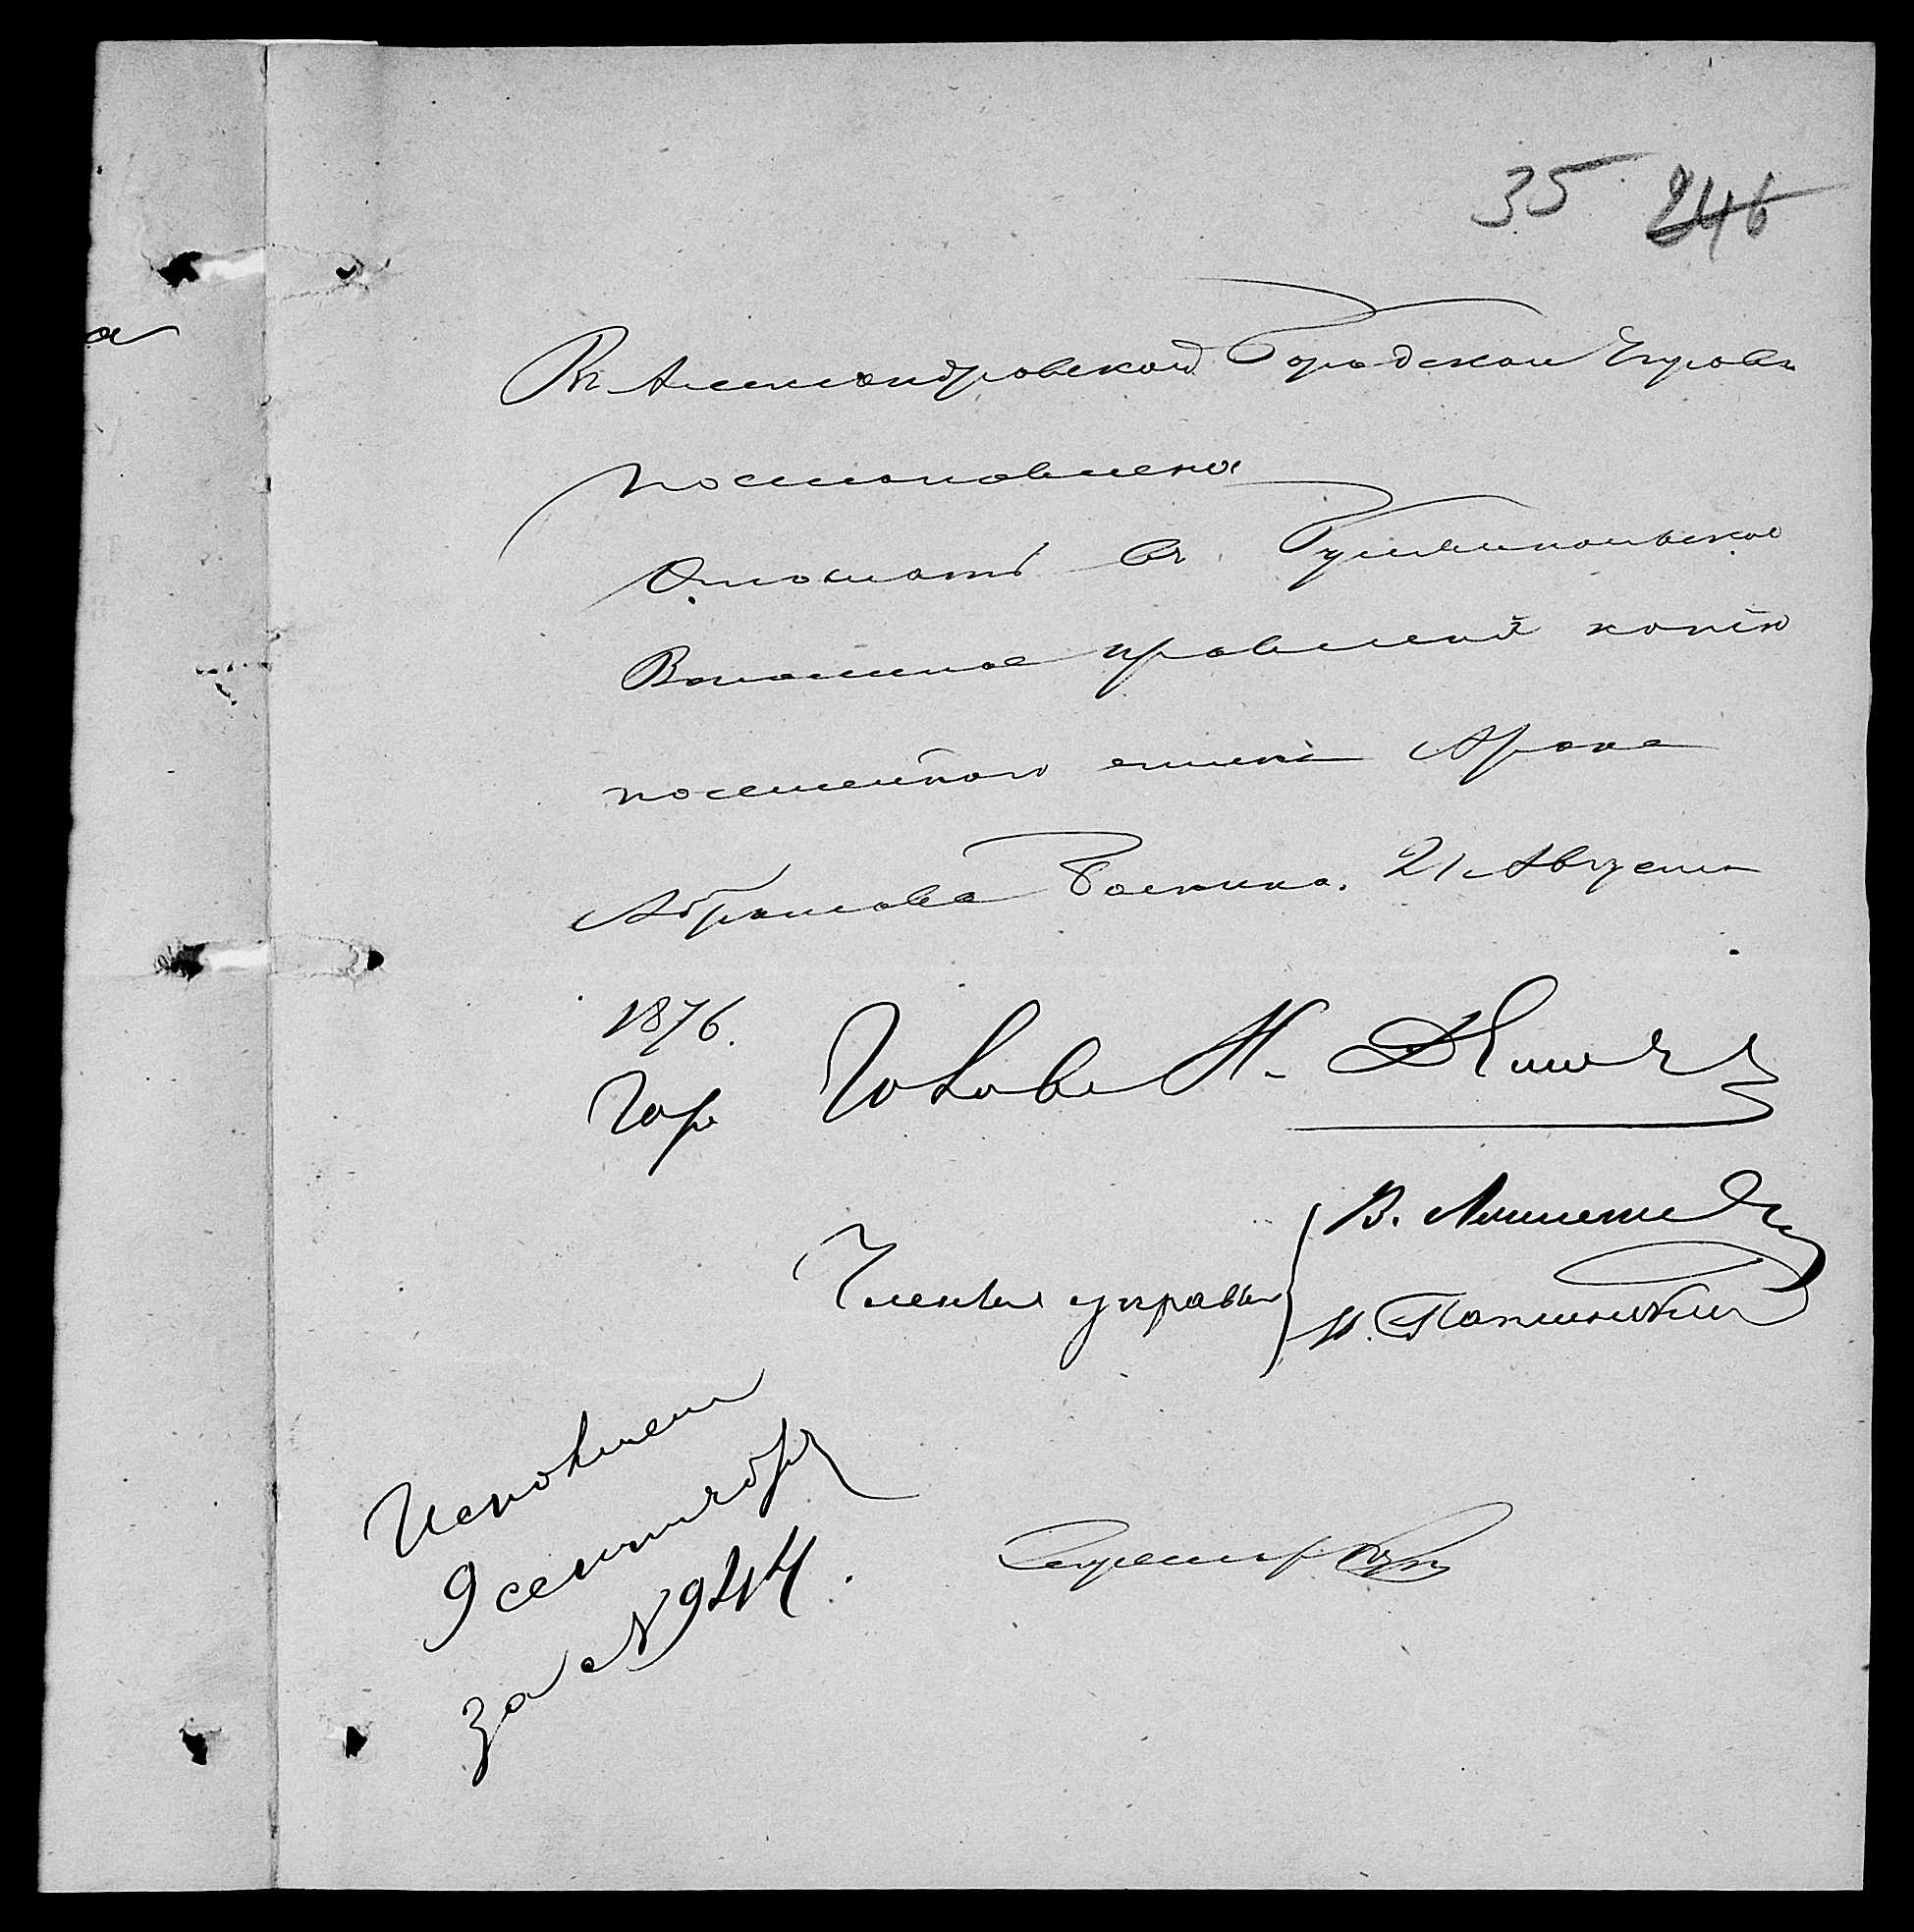 35 246
а
Въ Александровской Городской Управѣ
постановлено
Отослать въ Гуляйпольское
Волостное правленіе копію
посемейнаго списка Арона
Абрамова Боскина. 21 Августа
1876.
Гор Голова Н.
Члены управы В.
И.
Исполнен
9 сентября
за N 944.
Секретарь